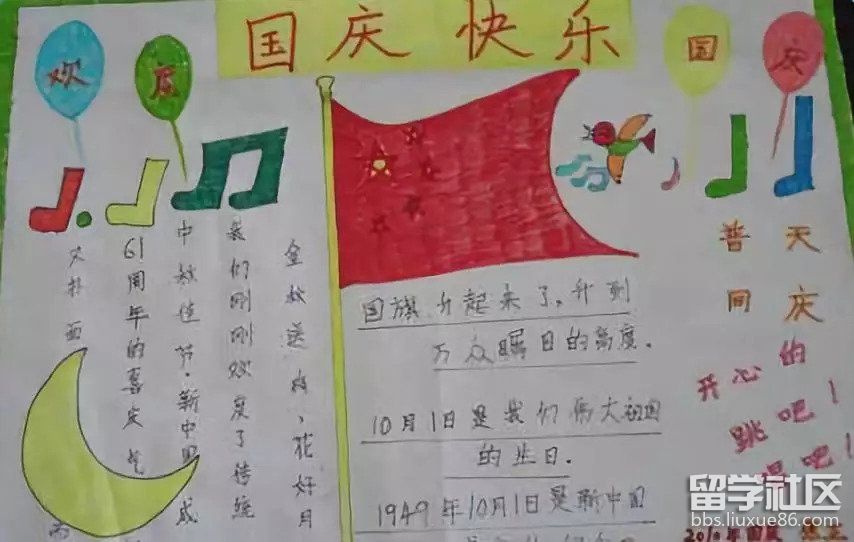 国庆快乐
欢
国
庆
金秋送爽、花好月
我们刚刚欢度了传统
中秋佳节。新中国成
61周年的喜庆气
又扑面
国旗升起来了，升到
万众瞩目的高度。
10月1日是我们伟大祖国
的生日。
1949年10月1日是新中国
普天
同庆
开心的
跳吧！
吧！
留学社区
bbs.liuxue86.com